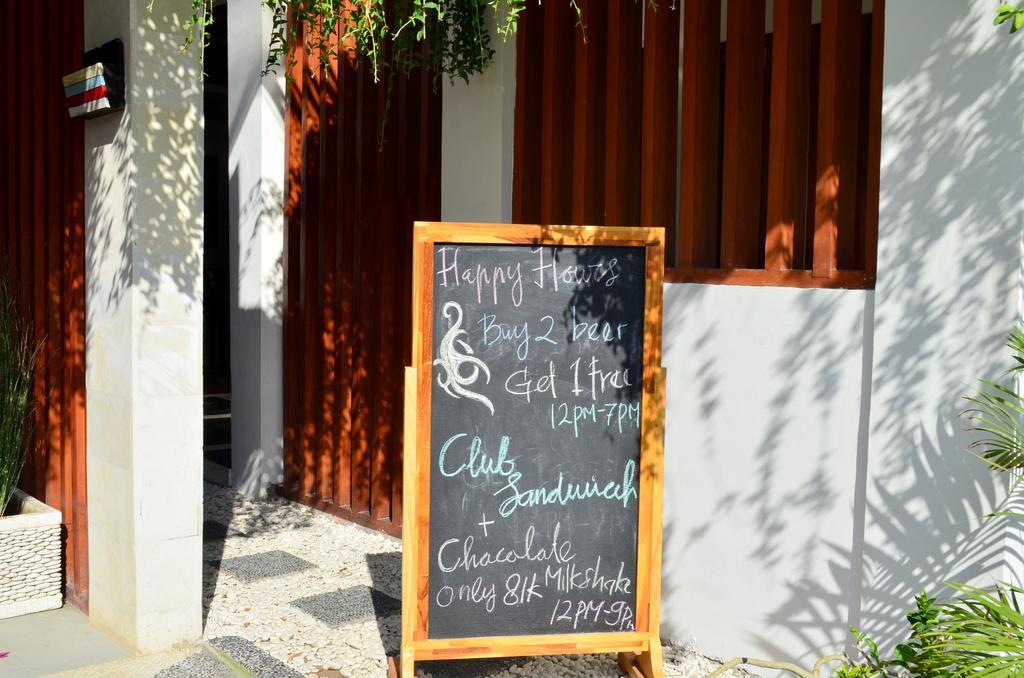 Happy Hours
Buy 2 beer
Get 1 free
12PM-7PM
Club
Sandwich
+
Chacolate
Milkshake
only 81k
12PM-9PM